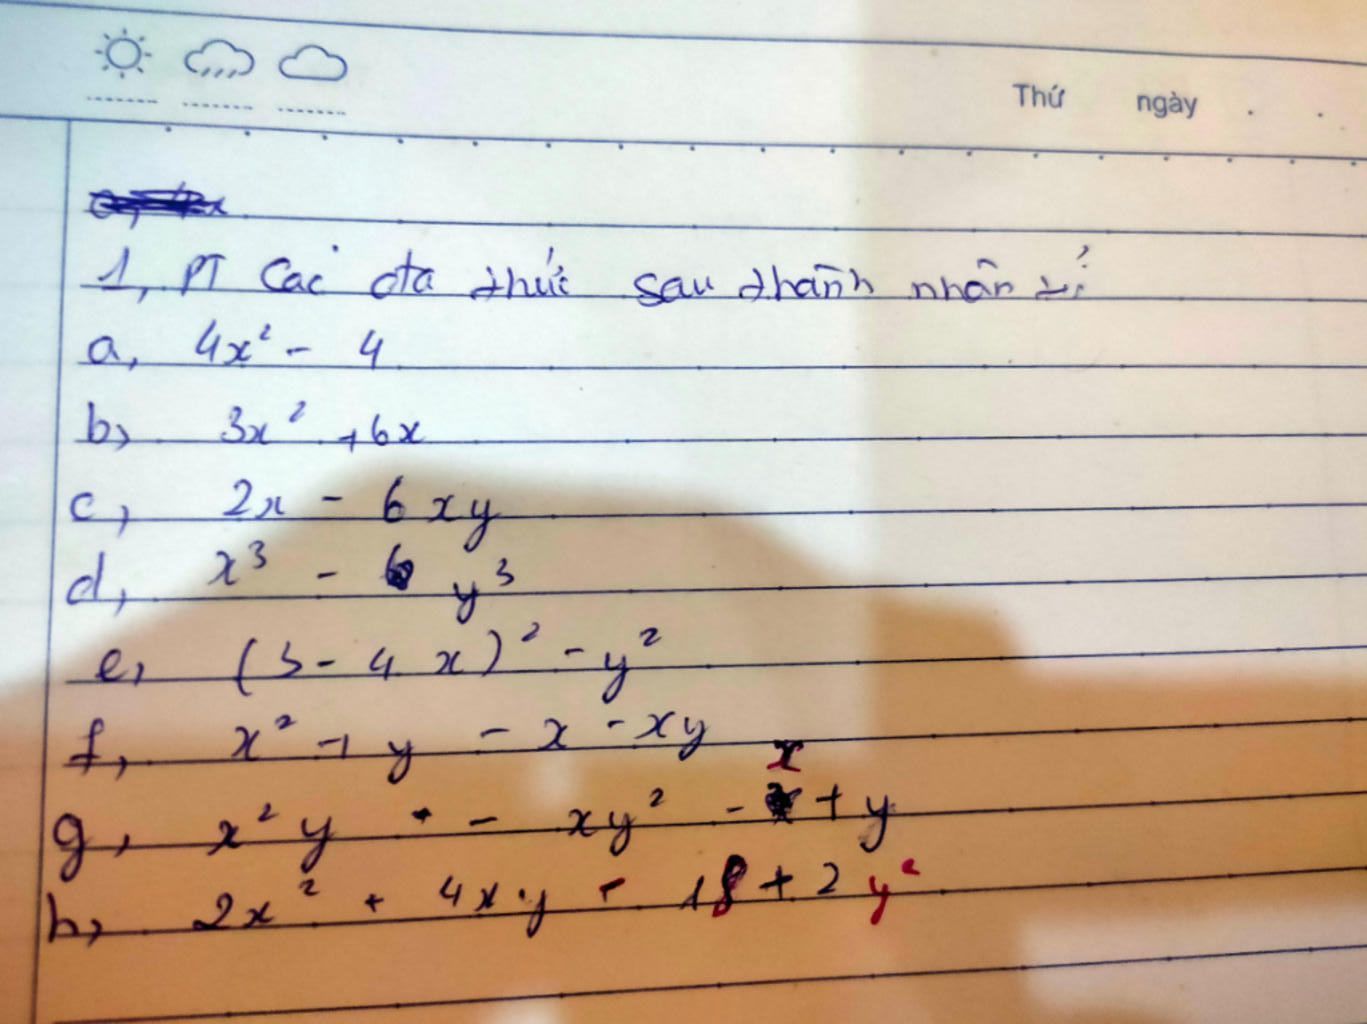 Thứ ngày
1, PT Các đa thức sau thành nhân tử
a, 4x² - 4
b, 3x² + 6x
c, 2x - 6xy
d, x³ - y³
e, (3 - 4x)² - y²
f, x² + y - x - xy
g, x²y - xy² - x + y
h, 2x² + 4xy - 18 + 2y²